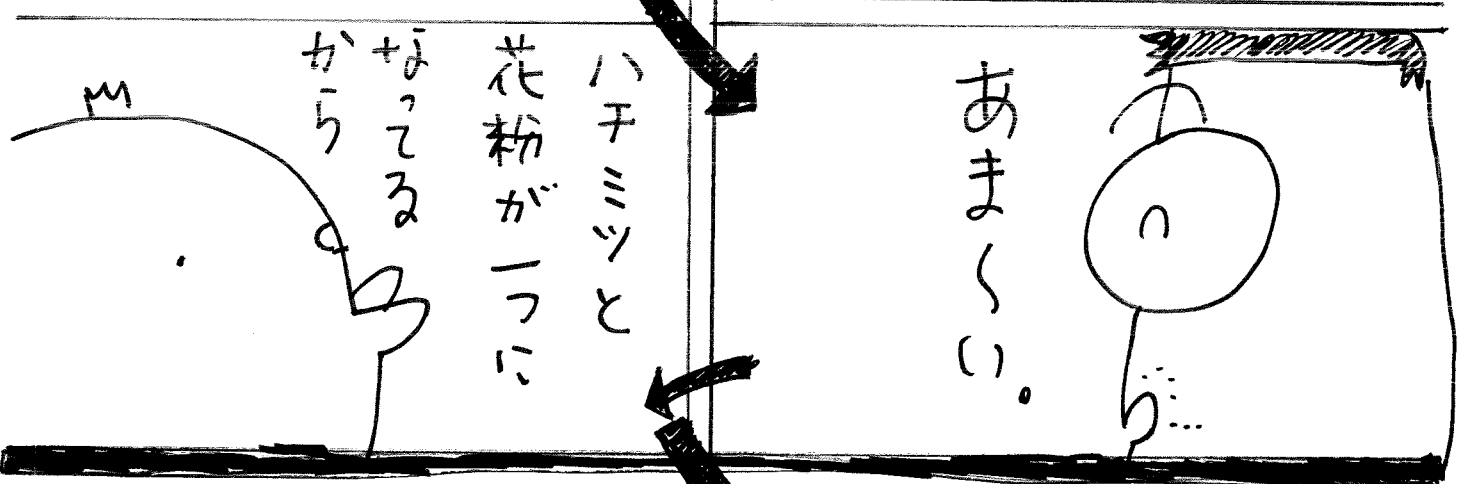 あま〜い。
ハチミツと
花粉が一つに
なってる
から